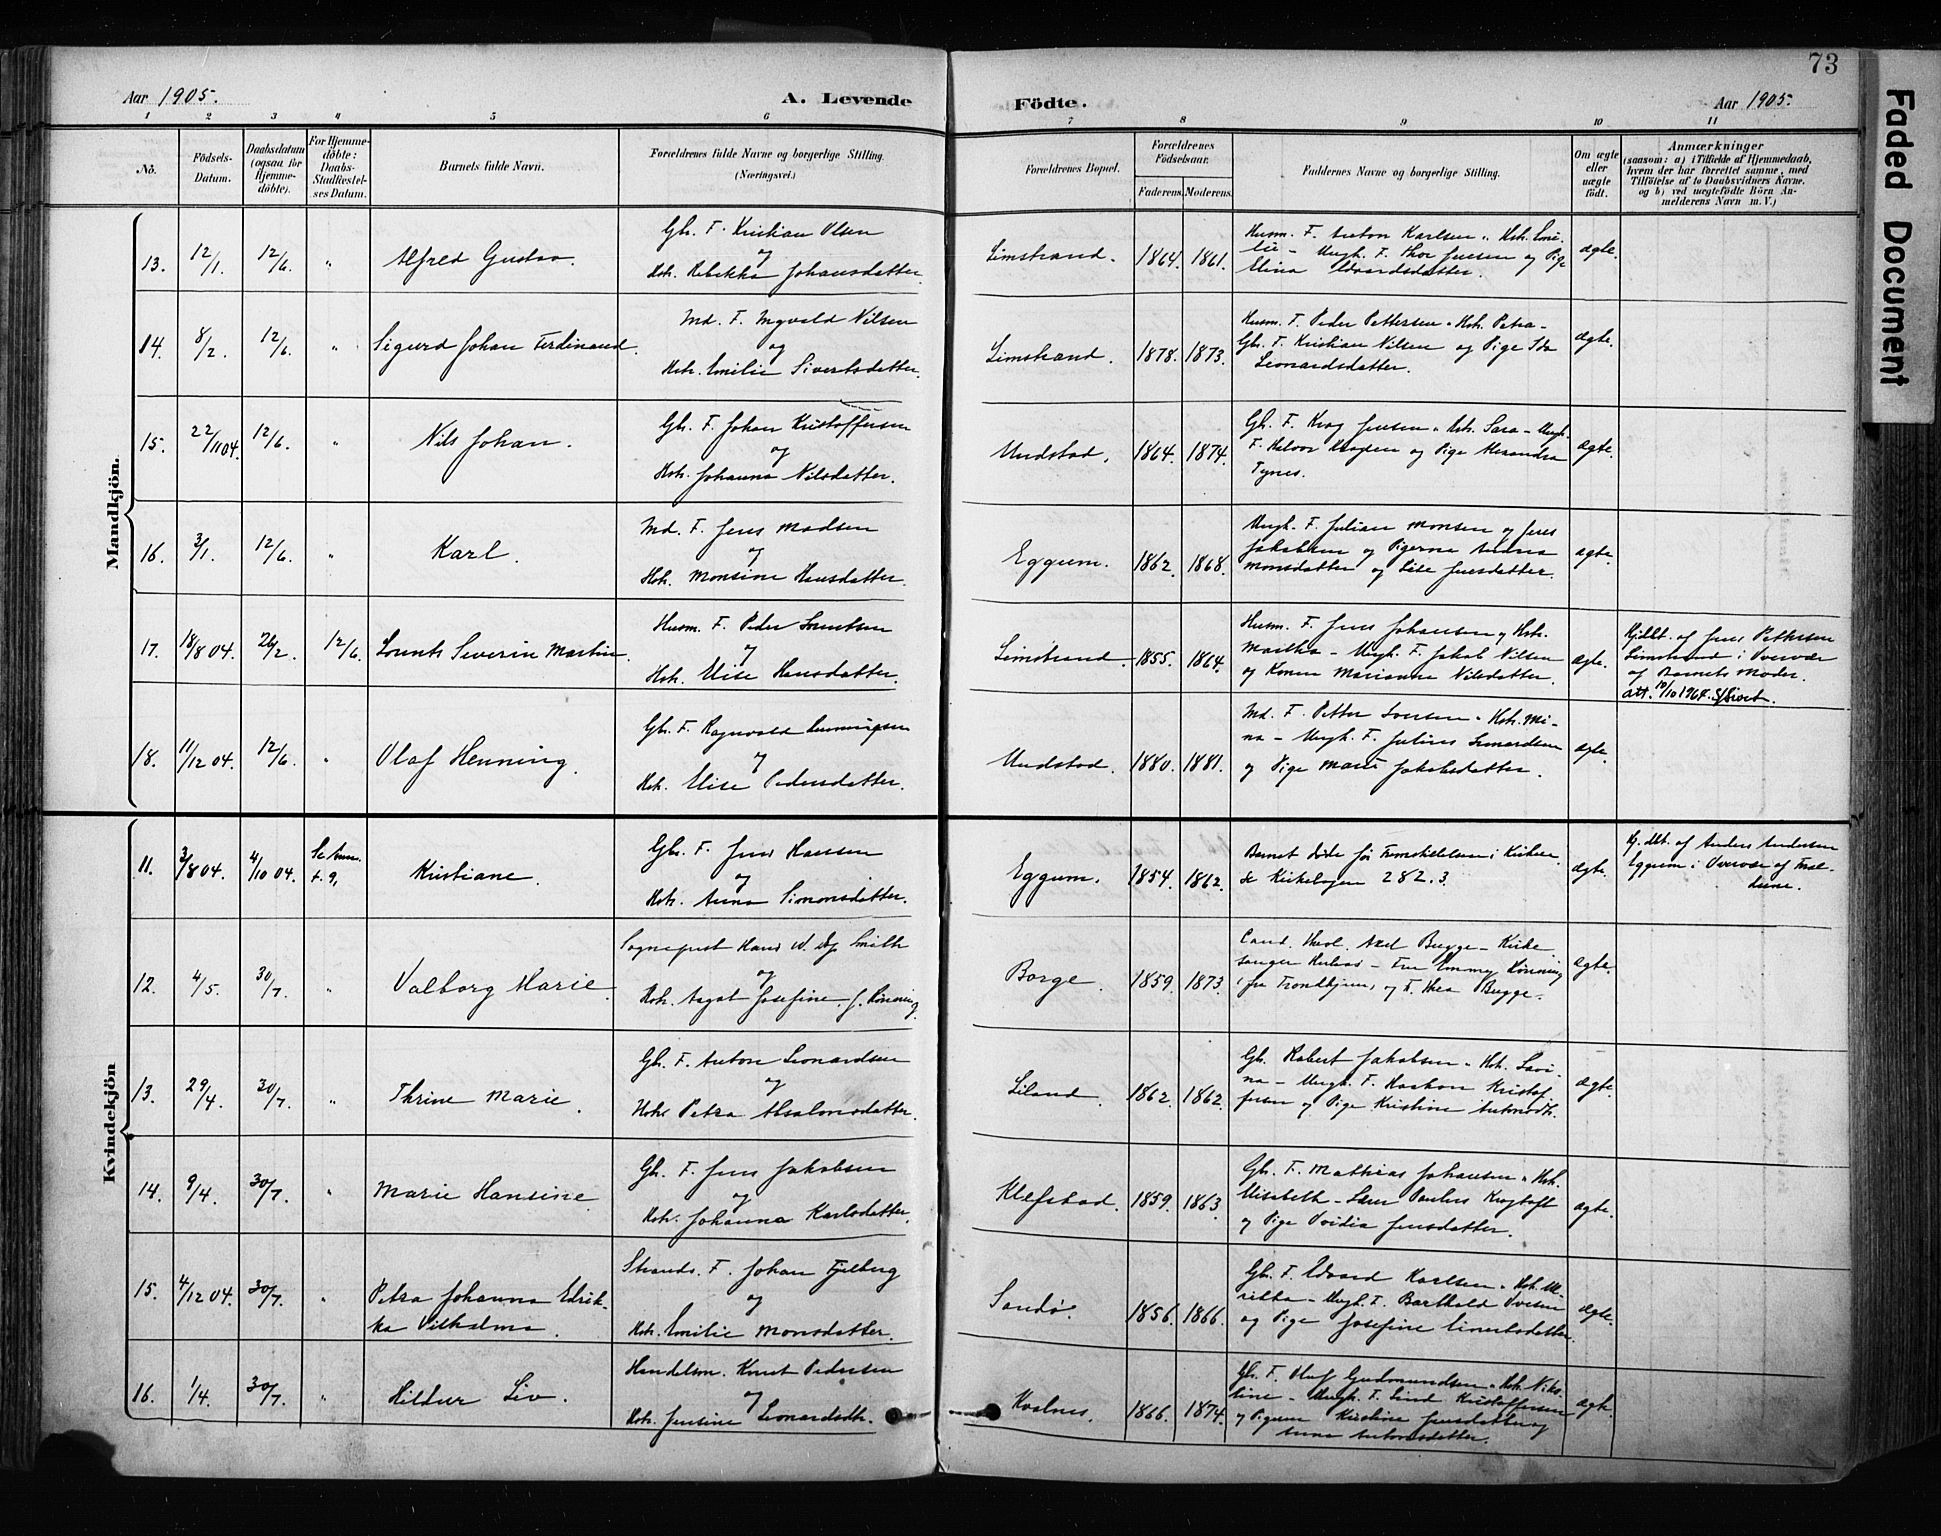 73
Faded Document
Aar 1905.
A. Levende
Födte.
Aar 1905.
1 2 3 4 5 6 7 8 9 10 11
No.
Födsels-
Datum.
Daabsdatum
(ogsaa for
Hjemme-
döbte).
For Hjemme-
döbte:
Daabs-
Stadfæstel-
ses Datum.
Barnets fulde Navn.
Forældrenes fulde Navne og borgerlige Stilling.
(Næringsvei.)
Forældrenes Bopæl.
Forældrenes
Födselsaar.
Faderens. Moderens.
Faddernes Navne og borgerlige Stilling.
Om ægte
eller
uægte
födt.
Anmærkninger
(saasom: a) i Tilfælde af Hjemmedaab,
hvem der har forrettet samme, med
Tilföielse af to Daabsvidners Navne,
og b) ved uægtefödte Börn An-
melderens Navn m. V.)
Mandkjön.
13. 12/1. 12/6. " Alfred Gustav.
Gbr. F. Kristian Olsen
og
Hstr. Rebekka Johansdatter.
Limstrand. 1864. 1861.
Husm. F. Anton Karlsen & Hstr. Emi-
lie - Ungk. F. Thor Jensen og Pige
Elina Edvardsdatter.
ægte.
14. 8/2. 12/6. " Sigurd Johan Ferdinand.
Md. F. Ingvald Nilsen
og
Hstr. Emilie Sivertsdatter.
Limstrand. 1878. 1873.
Husm. F. Peder Pettersen & Hstr. Petra -
Gbr. F. Kristian Nilsen og Pige Ida
Leonardsdatter.
ægte.
15. 22/11 04. 12/6. " Nils Johan.
Gbr. F. Johan Kristoffersen
og
Hstr. Johanna Nilsdatter.
Undstad. 1864. 1874.
Gbr. F. Krog Jensen & Hstr. Sara - Ungk.
F. Halvor og Pige Alexandra
Tynes.
ægte.
16. 3/1. 12/6. " Karl.
Md. F. Jens Madsen
og
Hstr. Monsine Hansdatter.
Eggum. 1862. 1868.
Ungk. F. Julian Monsen og Jens
Jakobsen og Pigerne
Monsdatter og Jensdatter.
ægte.
17. 18/8 04. 26/2. 12/6. Lorents Severin Martin.
Husm. F. Peder Lorentsen
og
Hstr. Elise Hansdatter.
Limstrand. 1855. 1864.
Husm. F. Jens Johansen & Hstr.
Martha - Ungk. F. Jakob Nilsen
og Konen Marianna Nilsdatter.
ægte.
Hj.dbt. af Jens Pettersen
Limstrand i Overvær
af Barnets Moder.
att. 10/10 1964.
18. 11/12 04. 12/6. " Olaf Henning.
Gbr. F. Ragnvald Henningsen
og
Hstr. Elise Pedersdatter.
Undstad. 1880. 1881.
Md. F. Petter & Hstr. Mi-
na - Ungk. F. Julius Leonardsen
og Pige Marie Jakobsdatter.
ægte.
Kvindekjön
11. 3/8 04. 4/10 04. Se Anm.
r. 9, Kristiane.
Gbr. F. Jens Hansen
og
Hstr. Anna Simonsdatter.
Eggum. 1854. 1862.
Barnet døde før Fremstillelsen i Kirken,
se Kirkebogen 282.3.
ægte.
Hj.dbt. af Anders Andersen
Eggum i Overvær af
12. 4/5. 30/7. " Valborg Marie.
Sognepræst Hans Smith
og
Hstr. Aagot Josefine, f. Rønning.
Borge. 1859. 1873.
Cand. theol. Axel Bugge - Kirke
sanger - Fru Emmy Rønning
(fra Trondhjem) og F. Thea Bugge.
ægte.
13. 29/4. 30/7. " Thrine Marie.
Gbr. F. Anton Leonardsen
og
Hstr. Petra Absalonsdatter.
Liland. 1862. 1862.
Gbr. Robert Jakobsen & Hstr. Lovi-
na - Ungk. F. Haakon Kristof-
fersen og Pige Kristine Antonsdtr.
ægte.
14. 9/4. 30/7. " Marie Hansine.
Gbr. F. Jens Jakobsen
og
Hstr. Johanna Karlsdatter.
Klefstad. 1859. 1863.
Gbr. F. Mathias Johansen & Hstr.
Elisabeth - Lærer Paulus Krogtoft
og Pige Ovidia Jensdatter.
ægte.
15. 4/12 04. 30/7. " Petra Johanna Edrik-
ka Vilhelma.
Strands. F. Johan Fjelberg
og
Hstr. Emilie Monsdatter.
Sandø. 1856. 1866.
Gbr. F. Edvard Karlsen & Hstr. Ul-
rikka - Ungk. F. Barthold Ovesen
og Pige Josefine Einertsdatter.
ægte.
16. 1/4. 30/7. " Hildur Liv.
Handelsm. Knut Pedersen
og
Hstr. Jensine Leonardsdtr.
Kvalnes. 1866. 1874.
Gbr. F. Olaf Gudmundsen & Hstr. Niko-
line - Ungk. F. Kristoffersen
og Pigerne Kirstine Jensdatter og
Anna Antonsdatter.
ægte.